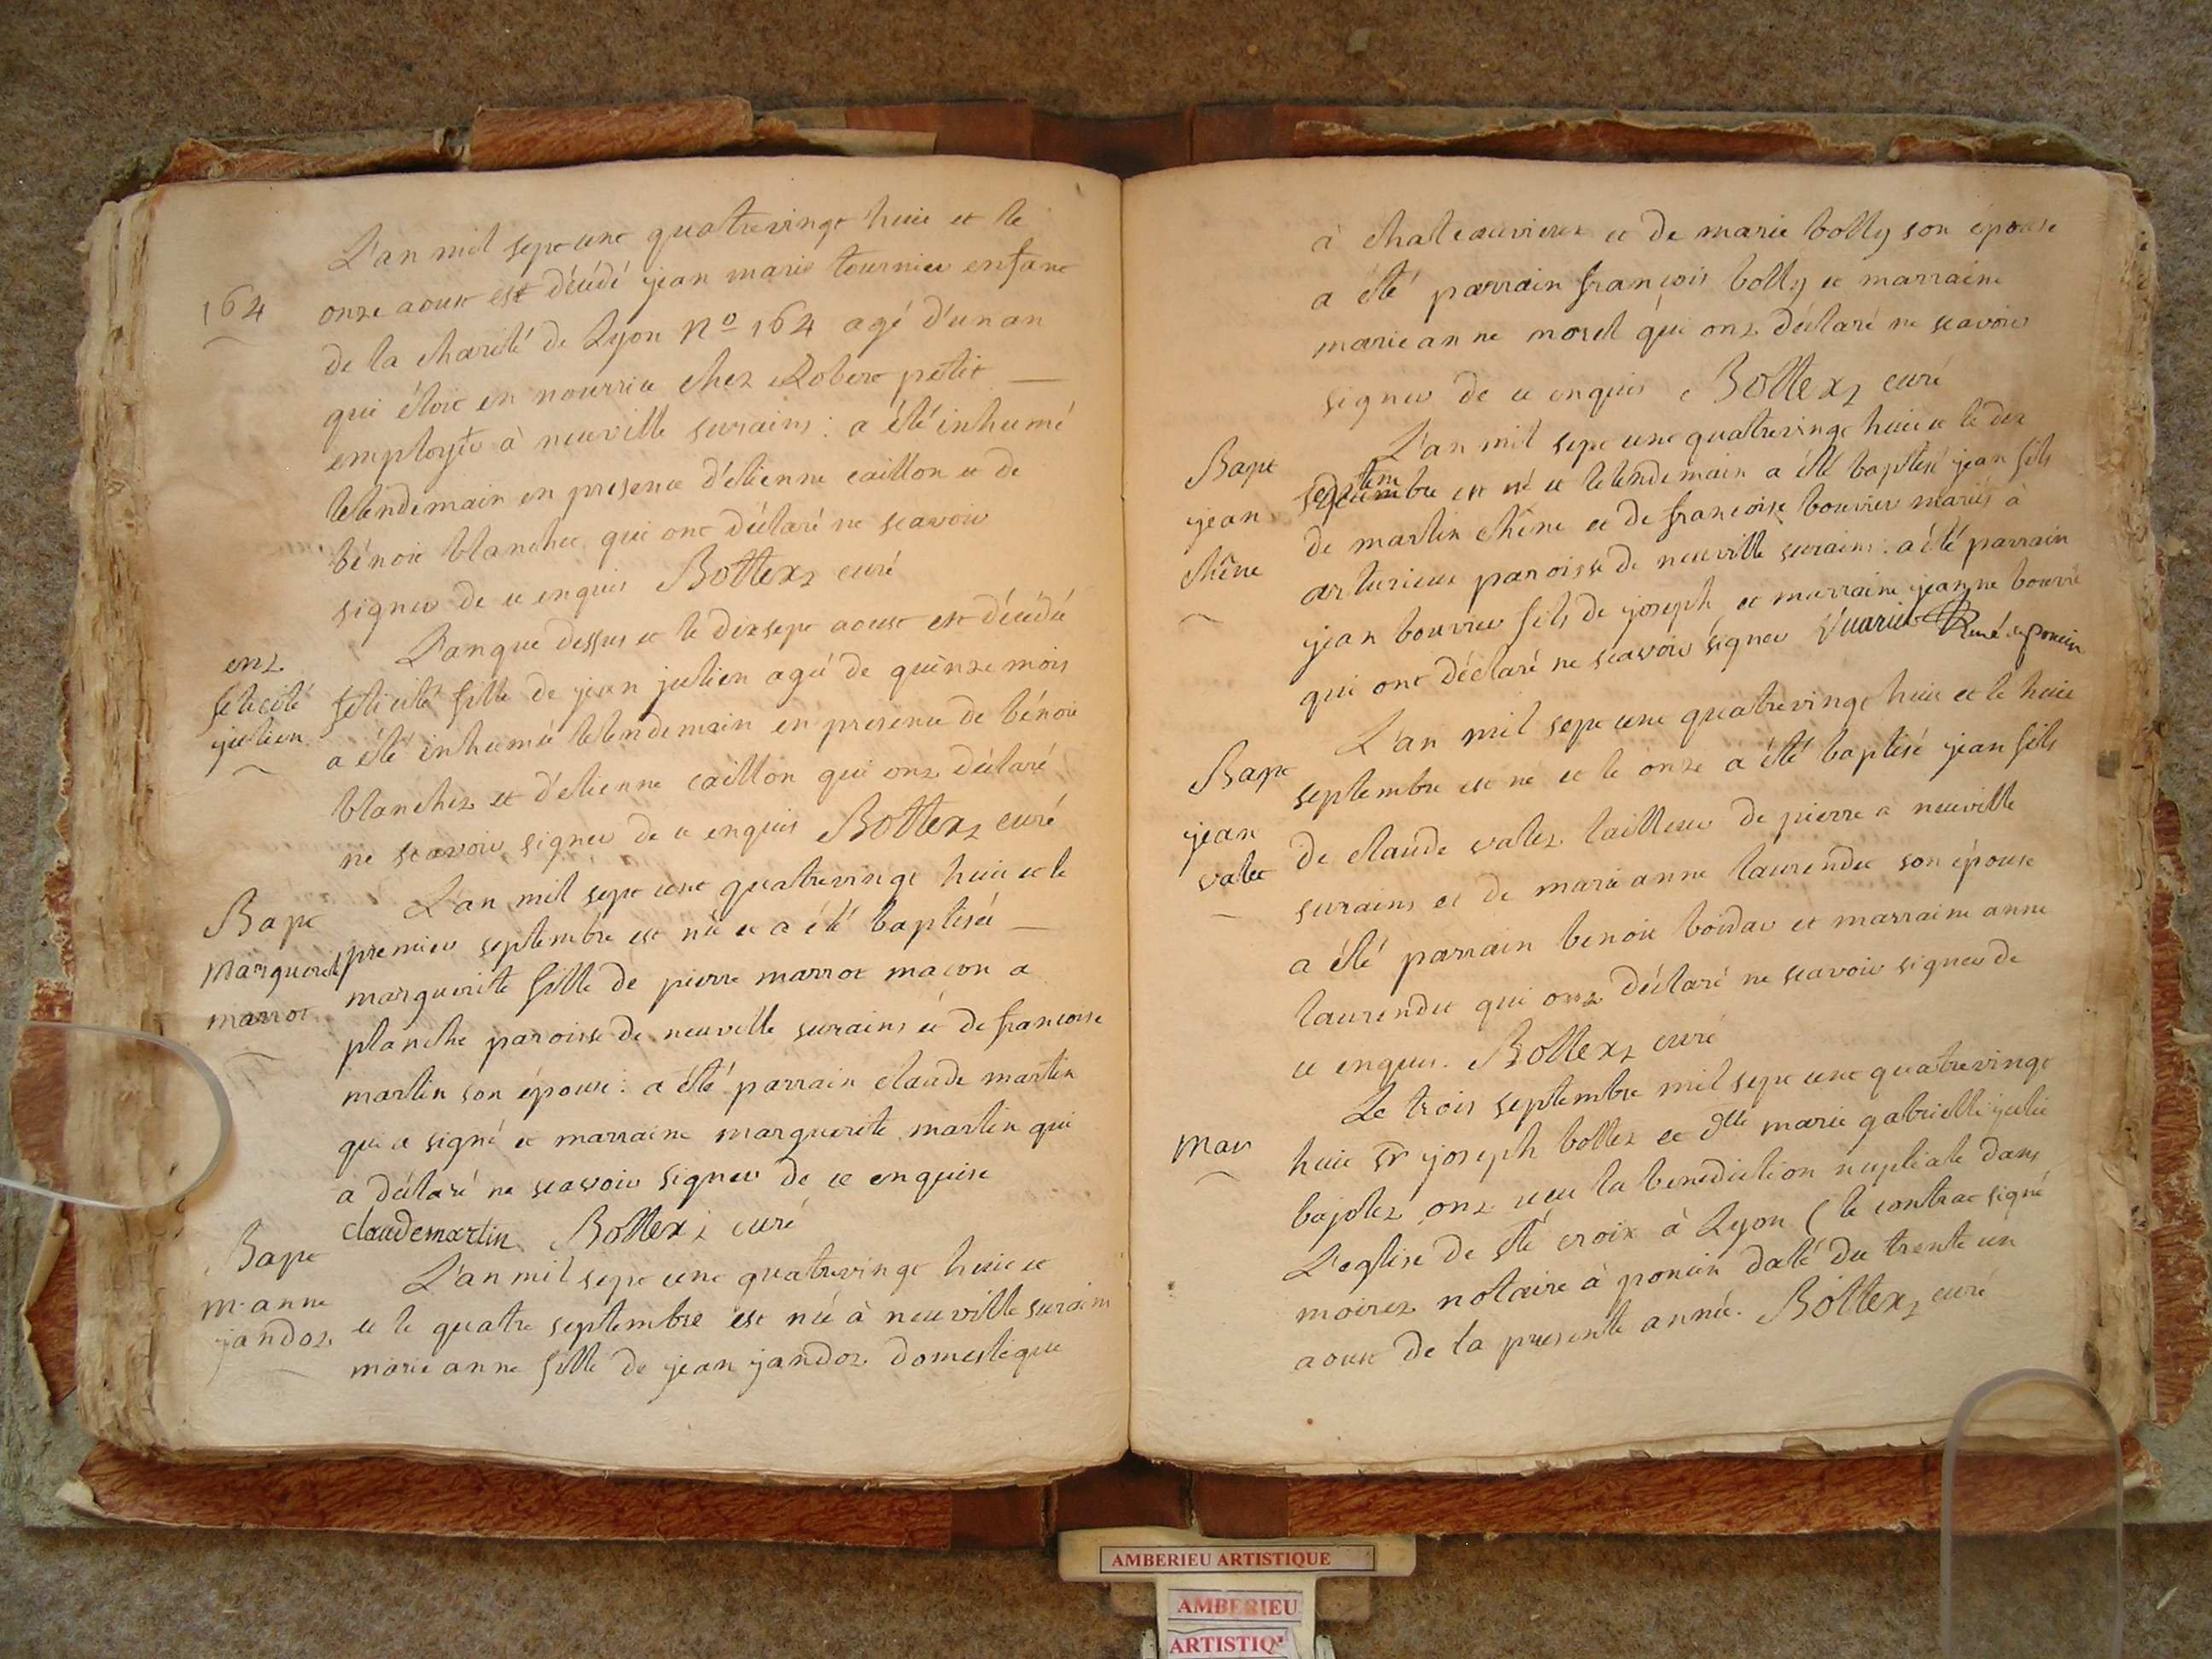 L'an mil sept cent quatrevingt huit et le
164
onze aoust est décédé jean marie tournier enfant
de la charité de Lyon No 164 agé d'un an
qui étoit en nourrice chez Robert petit
employé à neuville surains : a été inhumé
lelendemain en presence d'étienne caillon et de
bénoit blanchet qui ont déclaré ne scavoir
signer de ce enquis Bottex curé
L'an que dessus et le dix sept aoust est décédée
ent.
félicité
julien
félicité fille de jean julien agée de quinze mois
a été inhumée lelendemain en presence de bénoit
blanchet et d'étienne caillon qui ont déclaré
ne scavoir signer de ce enquis Bottex curé
Bapt
Marguerite
marrot
L'an mil sept cent quatrevingt huit et le
premier septembre est née et a été baptisée
marguerite fille de pierre marrot maçon a
planche paroisse de neuville surains et de francoise
martin son épouse : a été parrain claude martin
qui a signé et marraine marguerite martin qui
a déclaré ne scavoir signer de ce enquise
claude martin Bottex curé
Bapt
m. anne
jandot
L'an mil sept cent quatrevingt huit et
et le quatre septembre est née à neuville surains
marie anne fille de jean jandot domestique
à chateauvieux et de marie bolly son épouse
a été parrain françois bolly et marraine
marie anne morel qui ont déclaré ne scavoir
signer de ce enquis Bottex curé
Bapt
jean
chêne
L'an mil sept cent quatrevingt huit et le dix
septembre est né et lelendemain a été baptisé jean fils
de martin chêne et de francoise bouvier mariés à
paroisse de neuville surains : a été parrain
jean bouvier fils de joseph et marraine jeanne bouvier
qui ont déclaré ne scavoir signer curé de poncin
Bapt
jean
valet
L'an mil sept cent quatrevingt huit et le huit
septembre est né et le onze a été baptisé jean fils
de claude valet tailleur de pierre a neuville
surains et de marie anne laurendet son épouse
a été parrain benoit et marraine anne
laurendet qui ont déclaré ne scavoir signer de
ce enquis. Bottex curé
Mar
Le trois septembre mil sept cent quatrevingt
huit Sr joseph bottex et dlle marie gabrielle julie
ont recu la benediction nuptiale dans
L'eglise de Ste croix à Lyon (le contrat signé
notaire à poncin daté du trente un
aoust de la presente année. Bottex curé
AMBERIEU ARTISTIQUE
AMBERIEU
ARTISTIQ